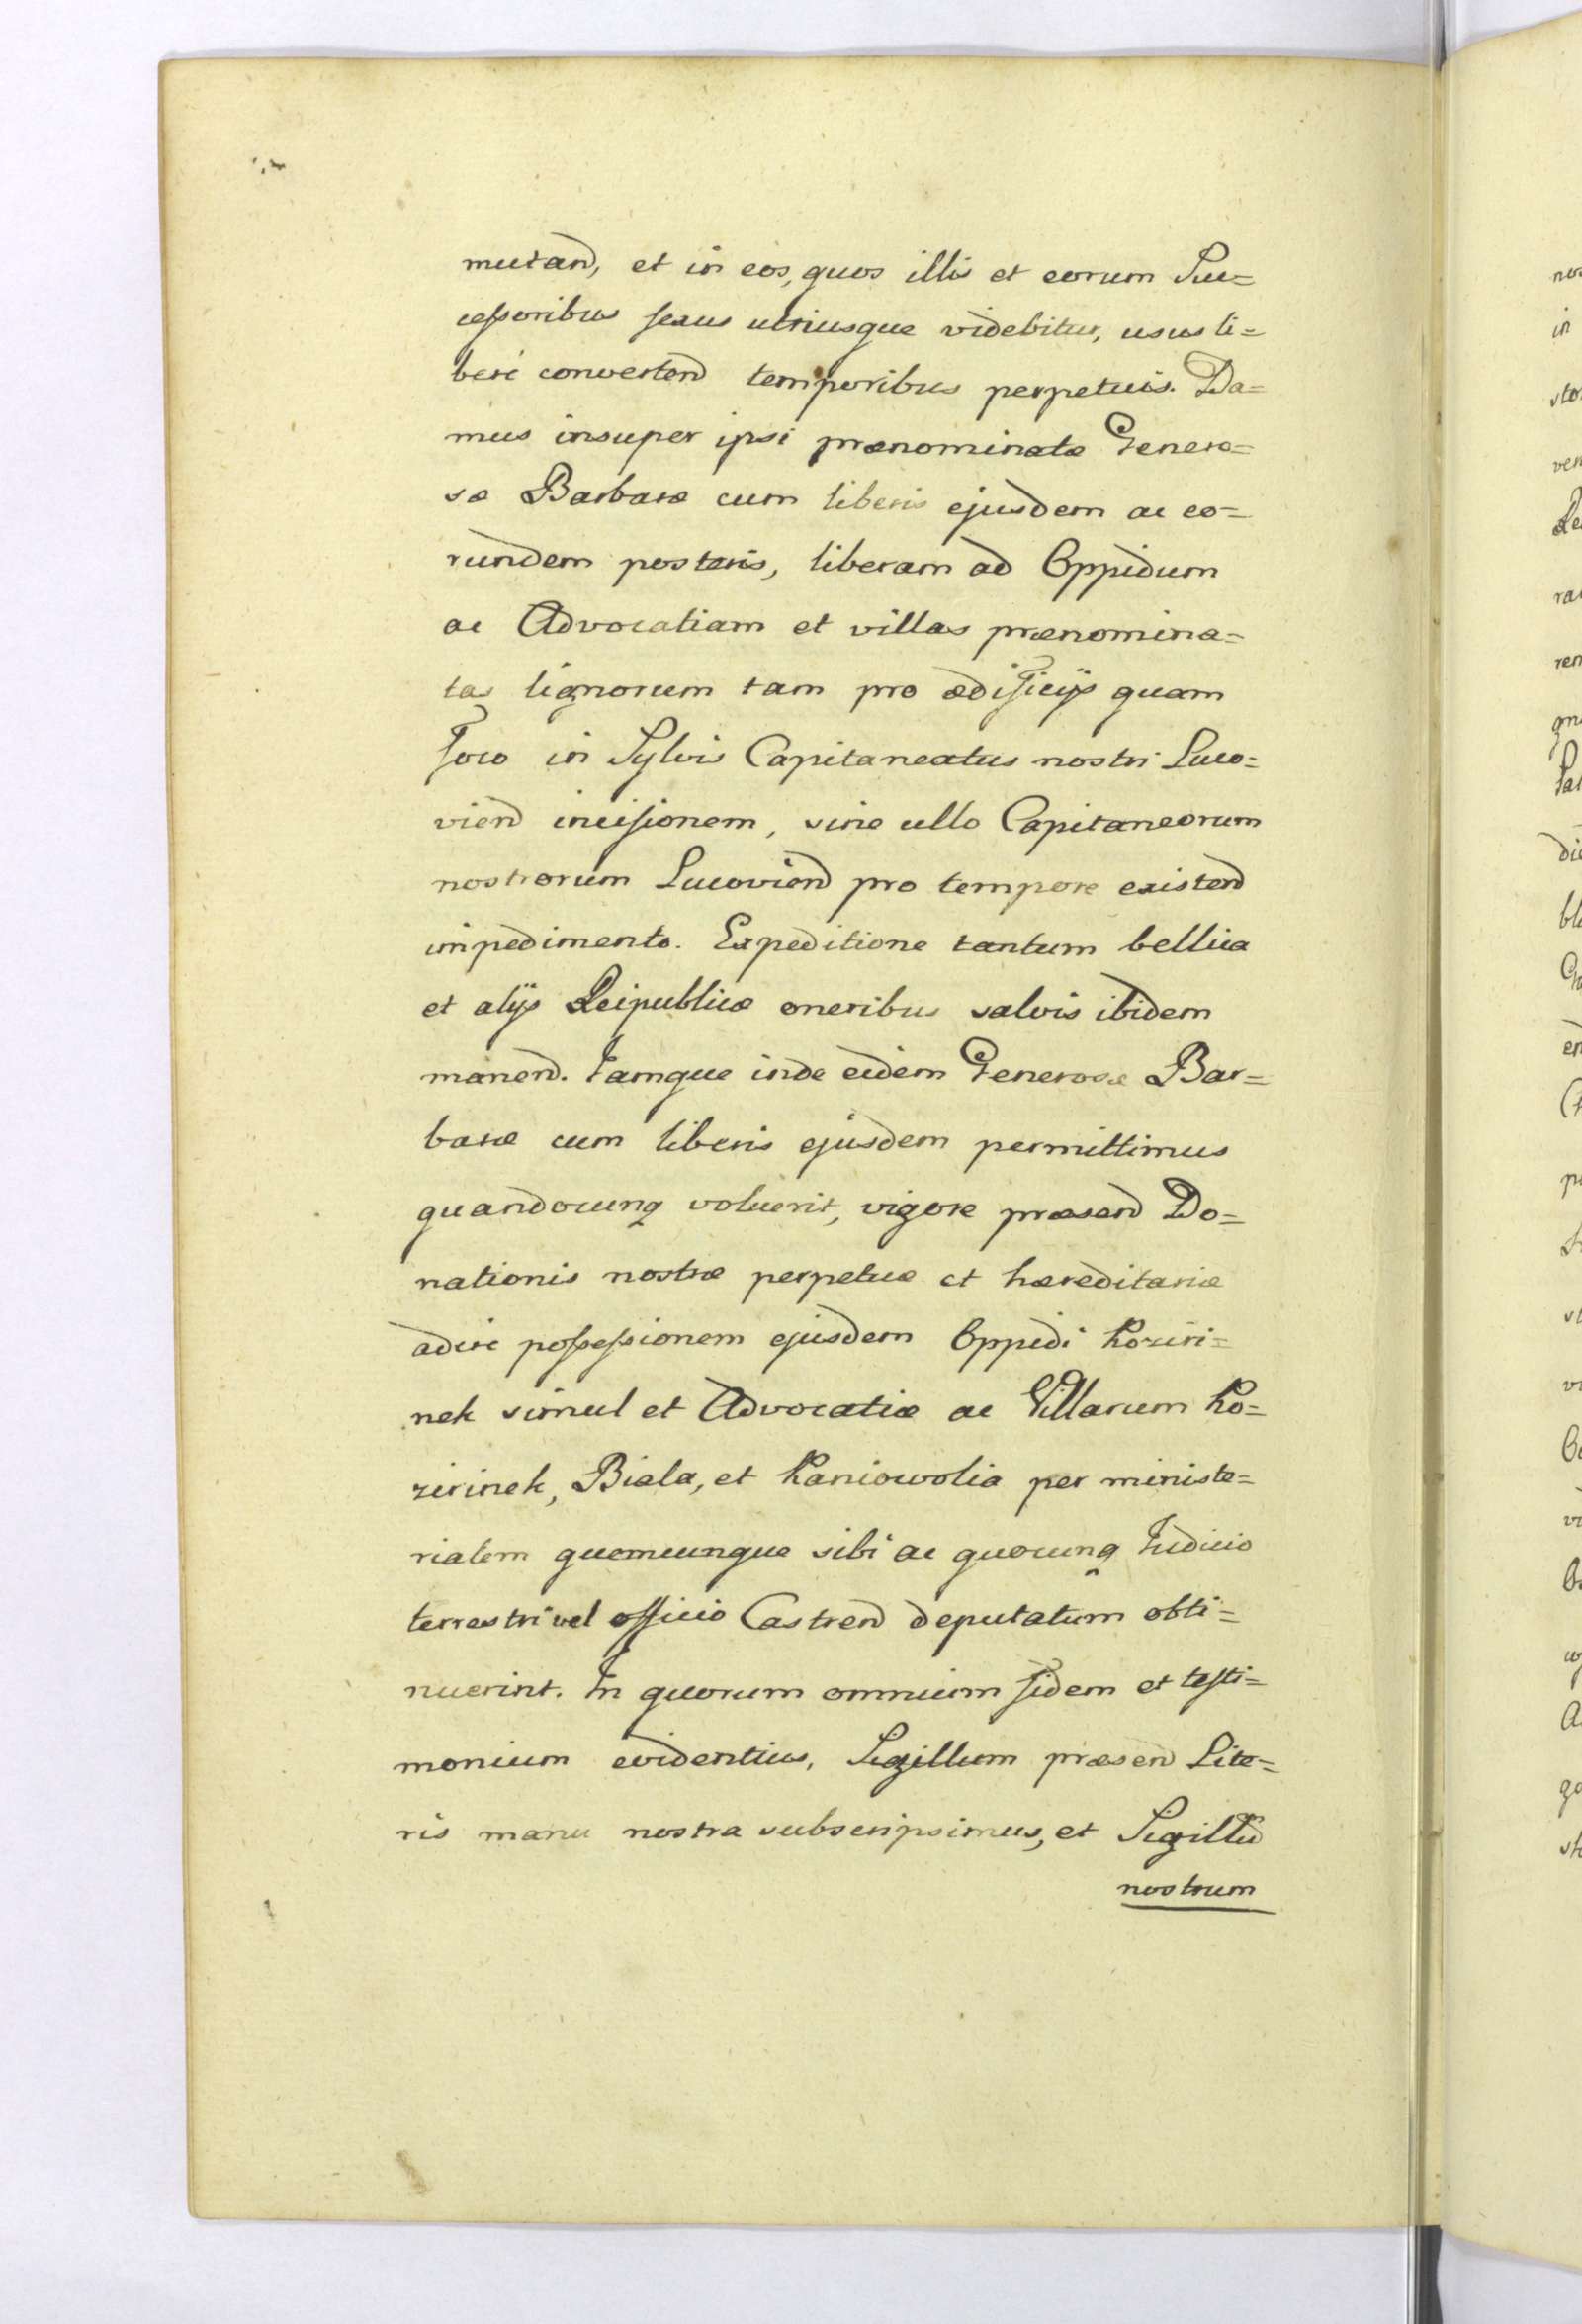 mutand, et in eos, quos illis et eorum Suc=
cessoribus sexus utriusque videbitur, usus li=
bere convertend temporibus perpetuis. Da=
mus insuper ipsi prænominatæ Genero=
sæ Barbaræ cum liberis ejusdem ac eo=
rundem posteris, liberam ad Oppidum
ac Advocatiam et villas prænomina=
tas lignorum tam pro ædificijs quam
foco in Sylvis Capitaneatus nostri Luco=
viend incisionem, sine ullo Capitaneorum
nostrorum Lucoviend pro tempore existend
impedimento. Expeditione tantum bellica
et alijs Reipublicæ oneribus salvis ibidem
manend. Jamque inde eidem Generosæ Bar=
baræ cum liberis ejusdem permittimus
quandocunq voluerit, vigore præsend Do=
nationis nostræ perpetuæ et hæreditariæ
adire possessionem ejusdem Oppidi Koziri=
nek simul et Advocatiæ ac Villarum Ko=
zirinek, Biala, et Kaniowolia per ministe=
rialem quemcunque sibi ac quocunq Judicio
terrestri vel officio Castrend deputatum obti=
nuerint. In quorum omnium fidem et testi=
monium evidentius, Sigillum præsend Lite=
ris manu nostra subscripsimus, et Sigillū
nostrum